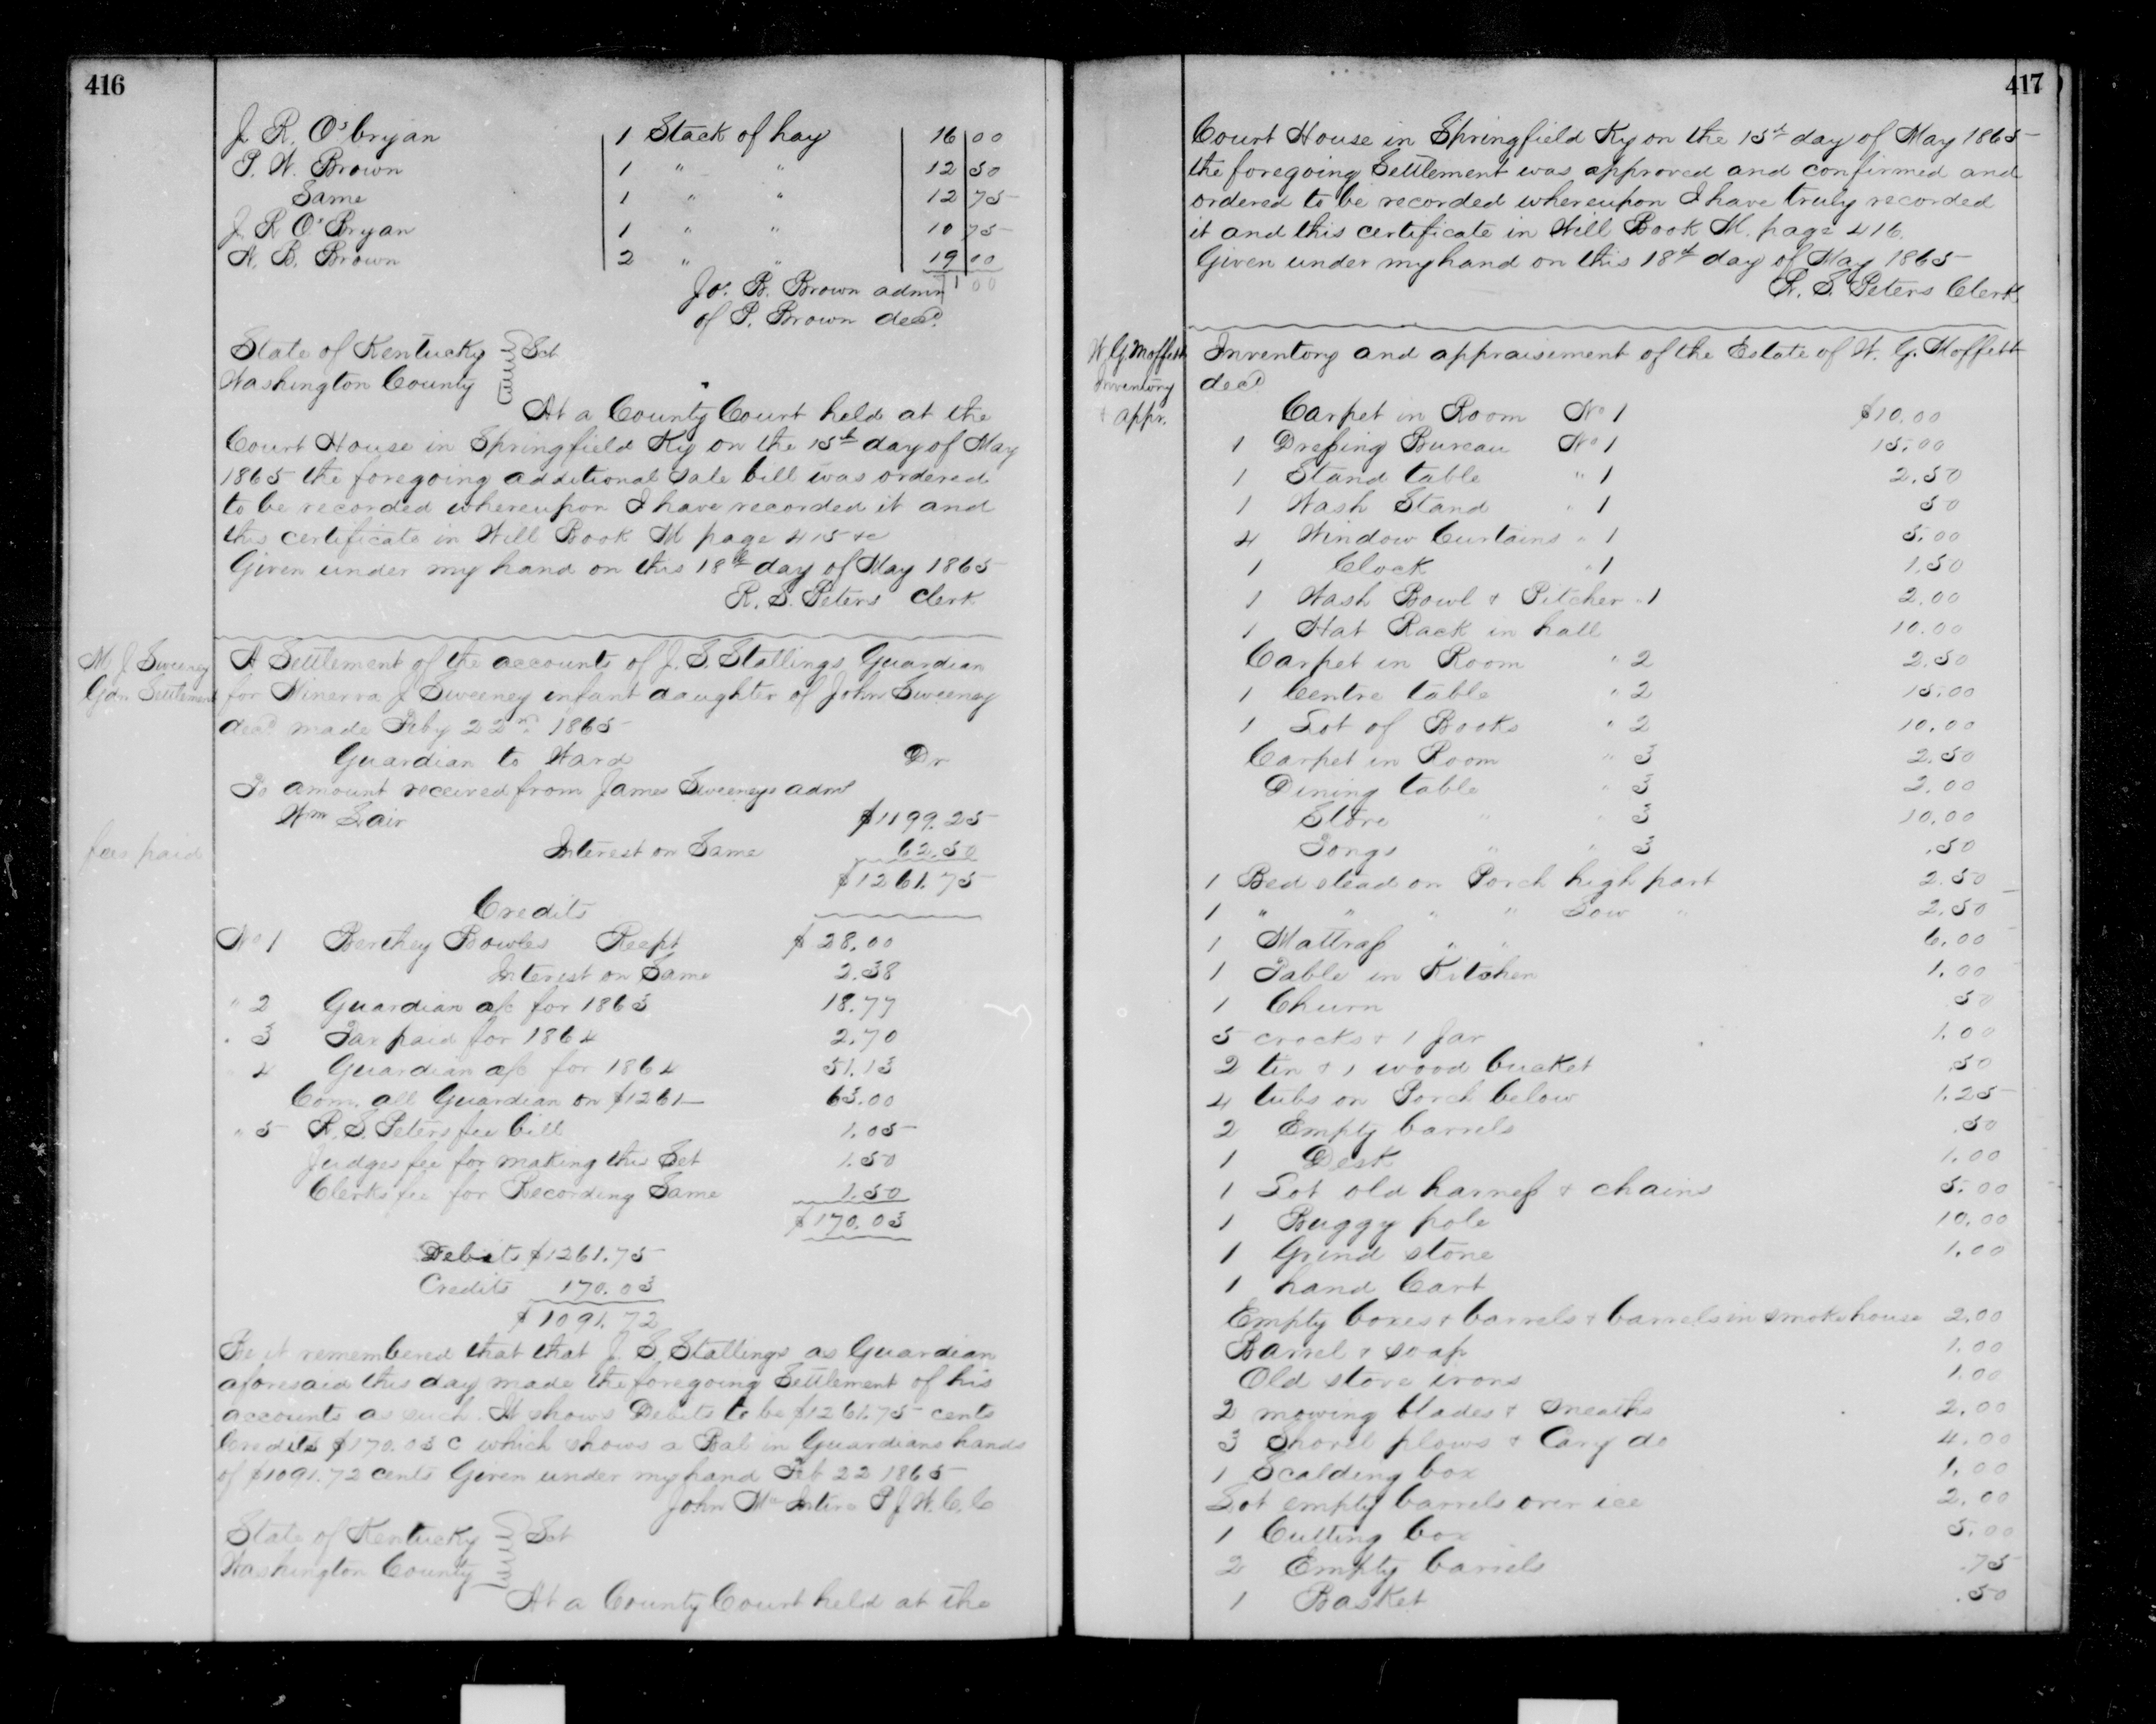 416
J. R. O'bryan 1 Stack of hay 16 00
P. W. Brown 1 " " 12 50
Same 1 " " 12 75
J. R. O'Bryan 1 " " 10 75
N. B. Brown 2 " " 19 00
Jos. B. Brown admr 71 00
of P. Brown decd.
State of Kentucky } Sct
Washington County
At a County Court held at the
Court House in Springfield Ky on the 15th day of May
1865 the foregoing additional sale bill was ordered
to be recorded whereupon I have recorded it and
this certificate in Will Book M page 415 &c
Given under my hand on this 18th day of May 1865
R. S. Peters Clerk
M. J. Sweeney
Gdn Settlement
A Settlement of the accounts of J. S. Stallings Guardian
for Minerva J Sweeney infant daughter of John Sweeney
decd made Feby 22nd 1865
Guardian to Ward Dr
To amount received from James Sweeneys admr
Wm Lair $1199.25
fees paid
Interest on Same 62.50
$1261.75
Credits
No 1 Berthey Bowles Recpt $28.00
Interest on Same 2.38
" 2 Guardian a/c for 1863 18.77
" 3 Tax paid for 1864 2.70
" 4 Guardian a/c for 1864 51.13
Com. all Guardian on $1261— 63.00
" 5 R. S. Peters fee bill 1.05
Judges fee for making this Set 1.50
Clerks fee for Recording Same 1.50
$170.03
Debits $1261.75
Credits 170.03
$1091.72
Be it remembered that that J. S. Stallings as Guardian
aforesaid this day made the foregoing Settlement of his
accounts as such. It shows Debits to be $1261.75 cents
Credits $170.03 c which shows a Bal in Guardians hands
of $1091.72 cents Given under my hand Feb 22 1865
John McIntire P J W. C. C
State of Kentucky } Sct
Washington County
At a County Court held at the
417
Court House in Springfield Ky on the 15th day of May 1865
the foregoing Settlement was approved and confirmed and
ordered to be recorded whereupon I have truly recorded
it and this certificate in Will Book M. page 416.
Given under my hand on this 18th day of May 1865
R. S. Peters Clerk
W. G Moffett
Inventory
& appr.
Inventory and appraisement of the Estate of W. G. Moffett
decd
Carpet in Room No 1 $10.00
1 Dressing Bureau No 1 15.00
1 Stand table " 1 2.50
1 Wash Stand " 1 50
4 Window Curtains " 1 5.00
1 Clock " 1 1.50
1 Wash Bowl & Pitcher " 1 2.00
1 Hat Rack in hall 10.00
Carpet in Room " 2 2.50
1 Centre table " 2 15.00
1 Lot of Books " 2 10.00
Carpet in Room " 3 2.50
Dining table " 3 2.00
Stove " " 3 10.00
Tongs " " 3 .50
1 Bed stead on Porch high part 2.50
1 " " " " Low " 2.50
1 Mattrass " " 6.00
1 Table in Kitchen 1.00
1 Churn 50
5 crocks & 1 Jar 1.00
2 tin & 1 wood bucket 50
4 tubs on Porch below 1.25
2 Empty barrels .50
1 Desk 1.00
1 Lot old harness & chains 5.00
1 Buggy pole 10.00
1 Grind stone 1.00
1 hand Cart
Empty boxes & barrels & barrels in smokehouse 2.00
Barrel & soap 1.00
Old stove irons 1.00
2 mowing blades & sneaths 2.00
3 Shovel plows & Cary do 4.00
1 Scalding box 1.00
Lot empty barrels over ice 2.00
1 Cutting box 5.00
2 Empty barrels .75
1 Basket .50